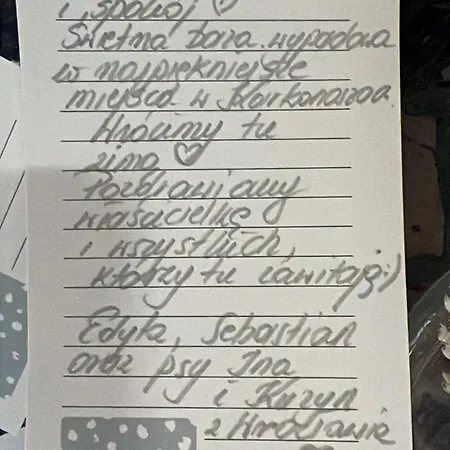 i spokój ♡
Świetna baza wypadowa
w najpiękniejsze
miejsca w Karkonoszach.
Wrócimy tu
zimą ♡
Pozdrawiamy
właścicielkę
i wszystkich,
którzy tu zawitają :)
Edyta, Sebastian
oraz psy Ina
i Kuzyn
z Wrocławia